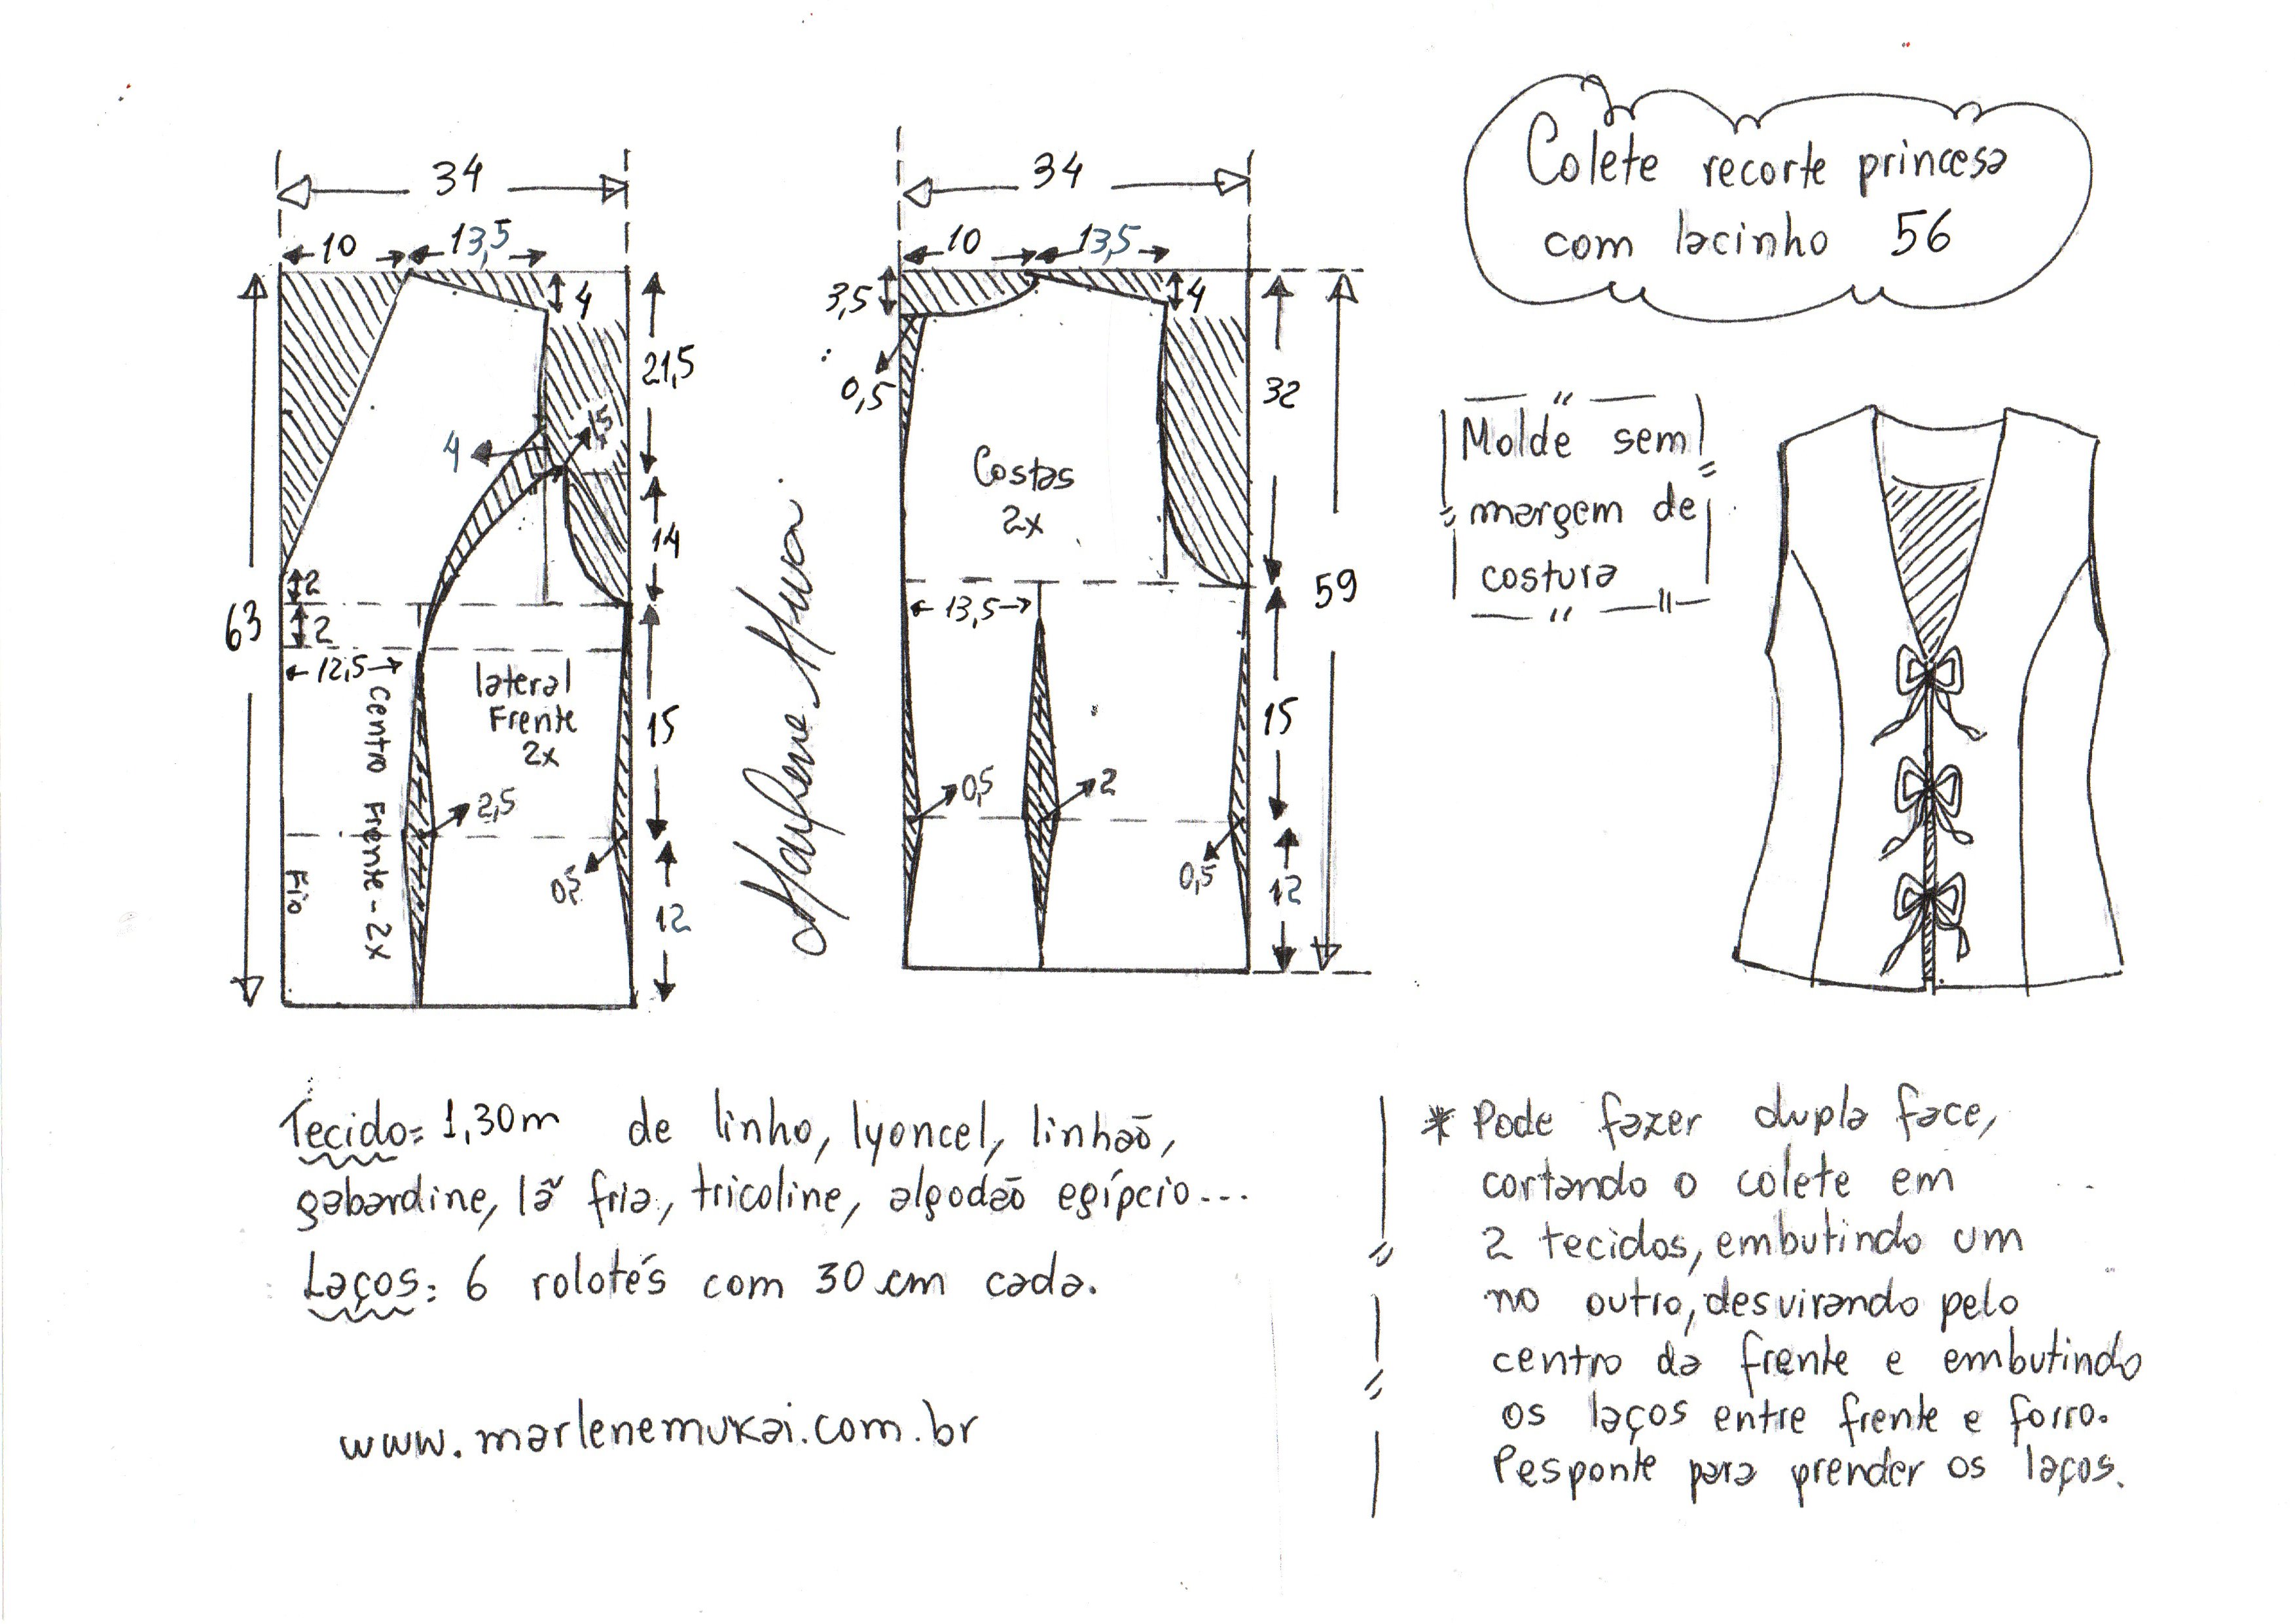 Colete recorte princesa
com lacinho 56
34
10
13,5
4
21,5
1,5
4
14
2
2
63
12,5
lateral
Frente
2x
Centro Frente - 2x
15
2,5
0,5
Fio
12
34
10
13,5
3,5
4
0,5
32
Costas
2x
59
13,5
15
0,5
2
0,5
12
Molde sem
margem de
costura
Tecido: 1,30m de linho, lyoncel, linhão,
gabardine, lã fria, tricoline, algodão egípcio...
Laços: 6 rolotés com 30 cm cada.
www.marlenemukai.com.br
* Pode fazer dupla face,
cortando o colete em
2 tecidos, embutindo um
no outro, desvirando pelo
centro da frente e embutindo
os laços entre frente e forro.
Pesponte para prender os laços.